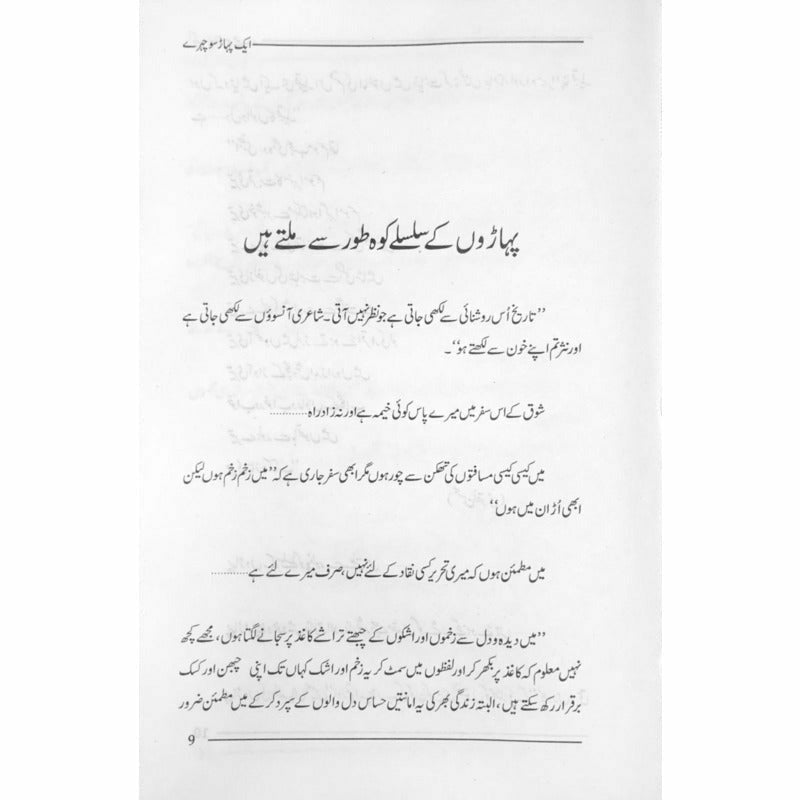 ایک پہاڑ سو چہرے
پہاڑوں کے سلسلے کوہ طور سے ملتے ہیں
’’تاریخ اُس روشنائی سے لکھی جاتی ہے جو نظر نہیں آتی۔ شاعری آنسوؤں سے لکھی جاتی ہے
اور نثر تم اپنے خون سے لکھتے ہو‘‘۔
شوق کے اس سفر میں میرے پاس کوئی خیمہ ہے اور نہ زادِ راہ............
میں کیسی کیسی مسافتوں کی تھکن سے چور ہوں مگر ابھی سفر جاری ہے کہ ’’میں زخم زخم ہوں لیکن
ابھی اُڑان میں ہوں‘‘
میں مطمئن ہوں کہ میری تحریر کسی نقاد کے لئے نہیں، صرف میرے لئے ہے............
’’میں دیدہ و دل سے زخموں اور اشکوں کے چبھتے تراشے کاغذ پر سجانے لگتا ہوں، مجھے کچھ
نہیں معلوم کہ کاغذ پر بکھر کر اور لفظوں میں سمٹ کر یہ زخم اور اشک کہاں تک اپنی چبھن اور کسک
برقرار رکھ سکتے ہیں، البتہ زندگی بھر کی یہ امانتیں حساس دل والوں کے سپرد کر کے میں مطمئن ضرور
9